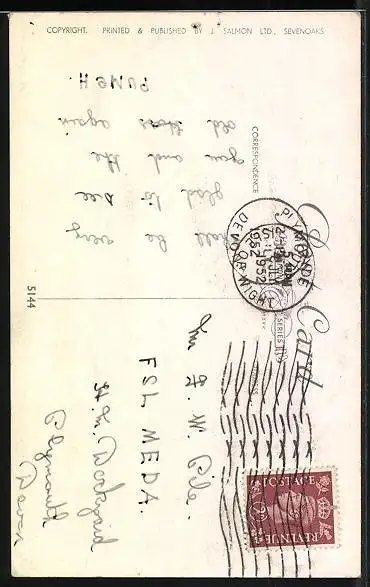 COPYRIGHT. PRINTED & PUBLISHED BY J. SALMON LTD., SEVENOAKS
Post Card
CORRESPONDENCE
will be very
glad to see
you and the
old again
PUNCH
5144
PLYMOUTH
DEVON
1952
SERIES
Mr F. W. Pile
FSL MEDA.
H.M. Dockyard
Plymouth
Devon
POSTAGE
2D
REVENUE